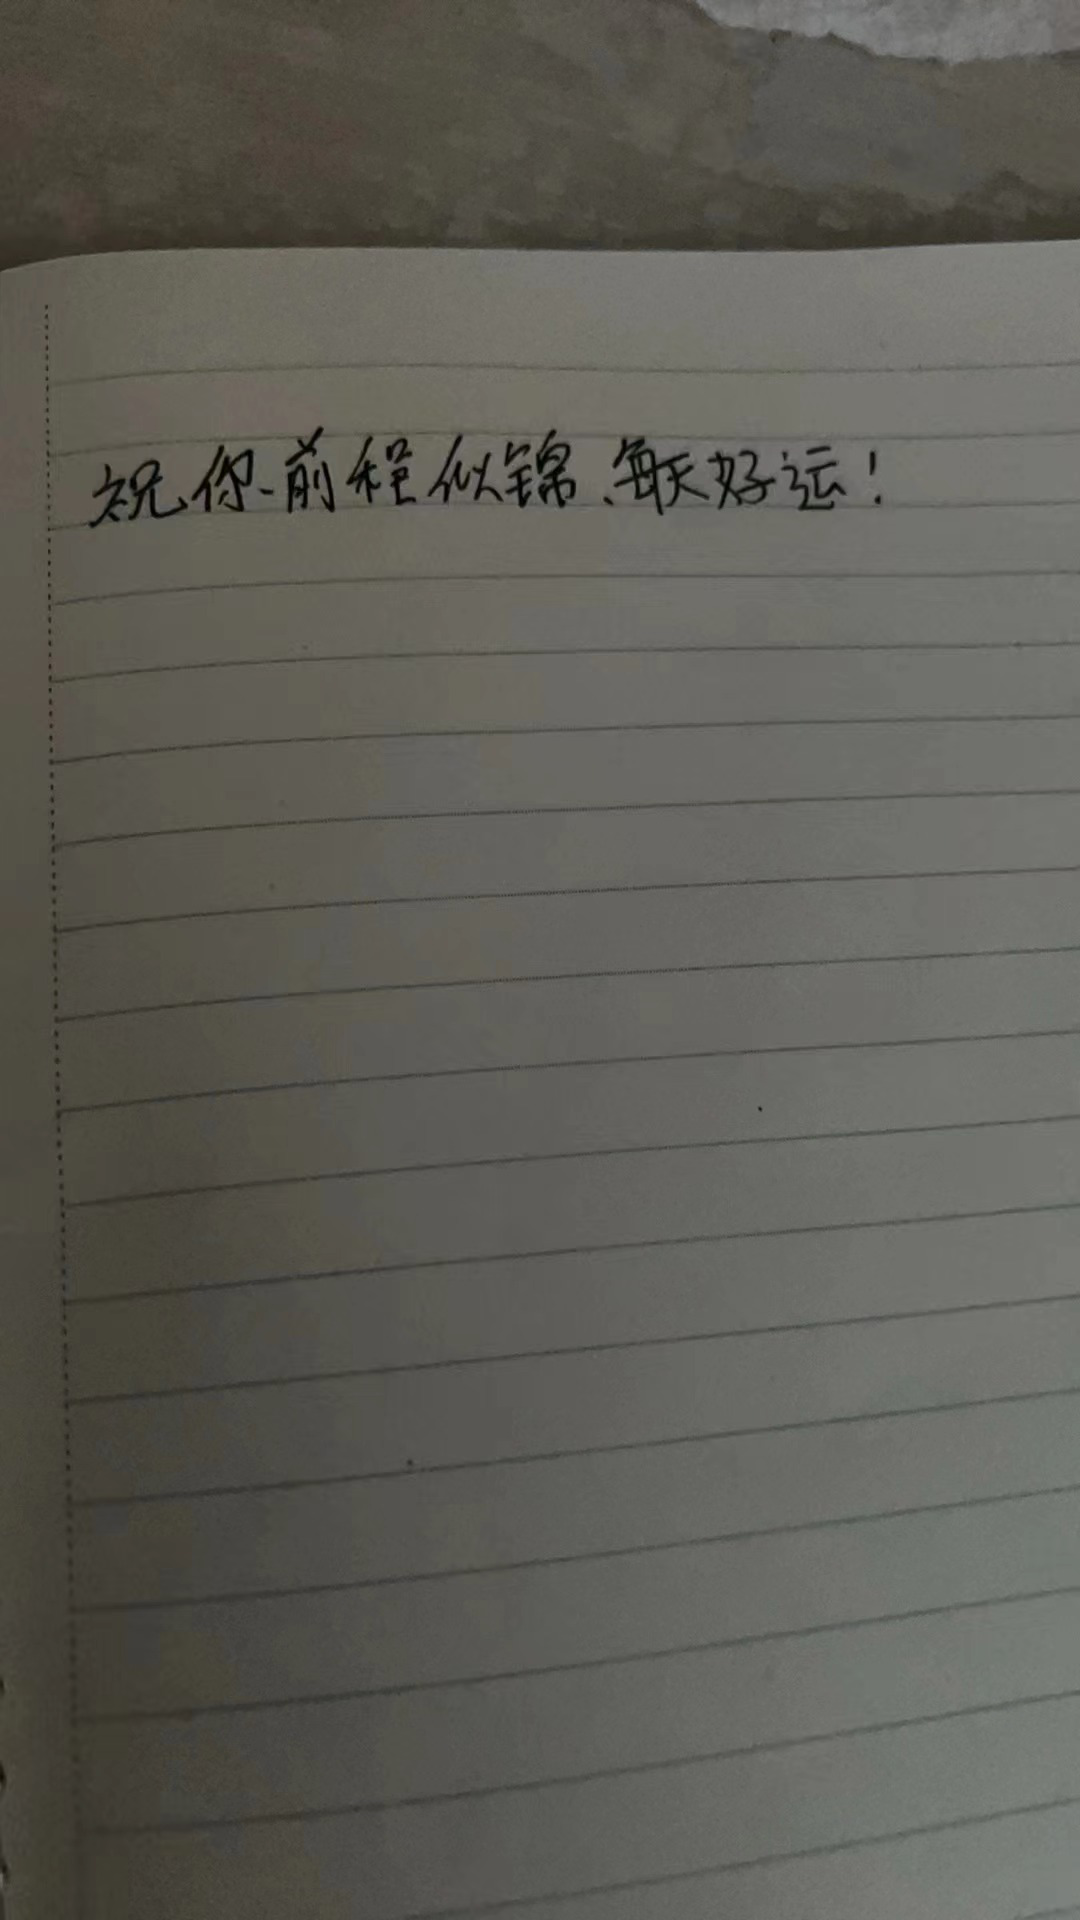 祝你前程似锦、每天好运！